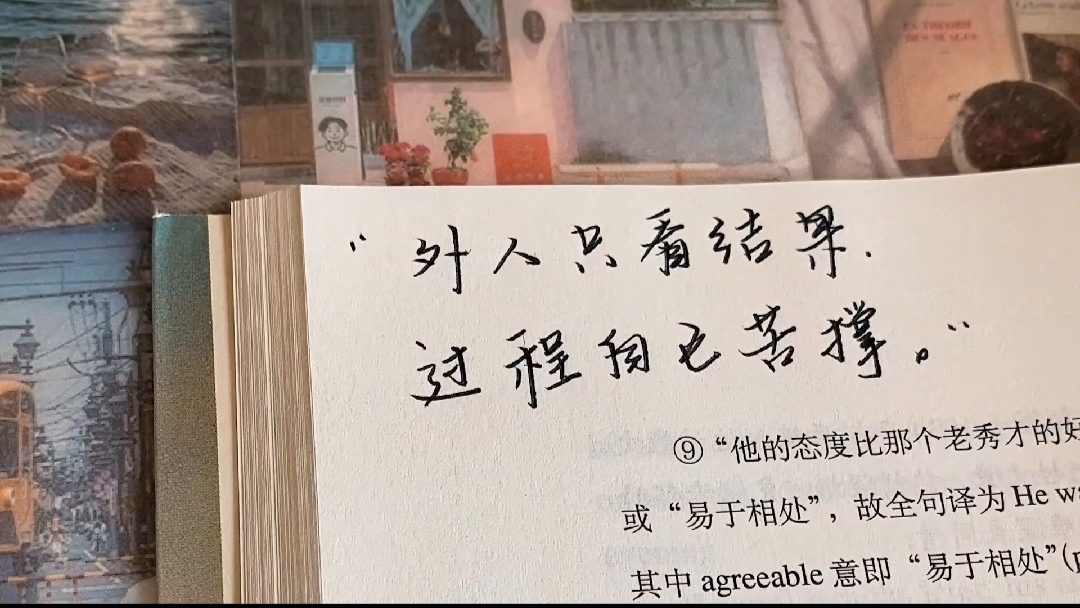 LA THÉORIE
DES NUAGES
“外人只看结果.
过程自己苦撑。”
⑨“他的态度比那个老秀才的好
或“易于相处”，故全句译为 He wa
其中 agreeable 意即“易于相处”(p